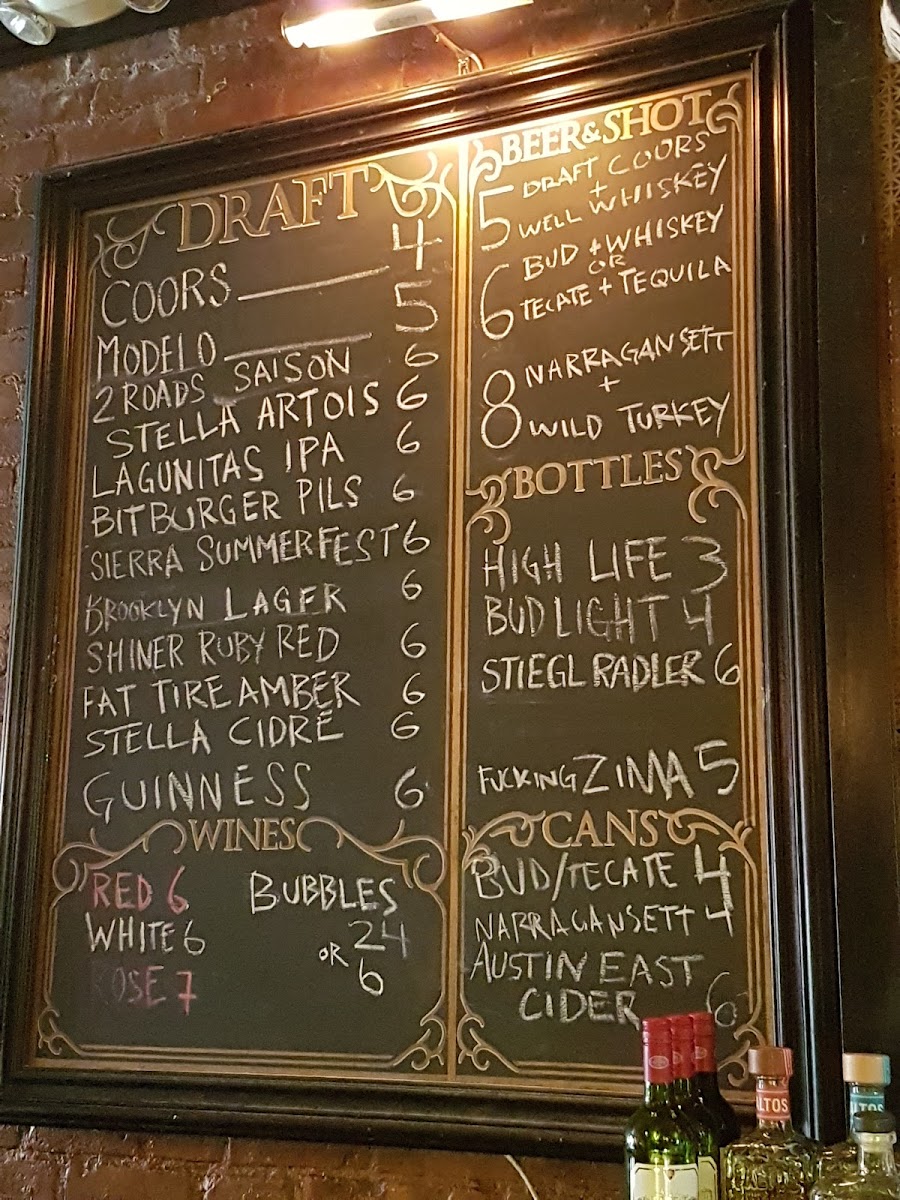 DRAFT
COORS 4
MODELO 5
2 ROADS SAISON 6
STELLA ARTOIS 6
LAGUNITAS IPA 6
BITBURGER PILS 6
SIERRA SUMMERFEST 6
BROOKLYN LAGER 6
SHINER RUBY RED 6
FAT TIRE AMBER 6
STELLA CIDRE 6
GUINNESS 6
WINES
RED 6
WHITE 6
ROSE 7
BUBBLES
24
OR 6
BEER & SHOT
5 DRAFT COORS
+
WELL WHISKEY
6 BUD + WHISKEY
OR
TECATE + TEQUILA
8 NARRAGANSETT
+
WILD TURKEY
BOTTLES
HIGH LIFE 3
BUD LIGHT 4
STIEGL RADLER 6
FUCKING ZIMA 5
CANS
BUD/TECATE 4
NARRAGANSETT 4
AUSTIN EAST
CIDER 6
ALTOS